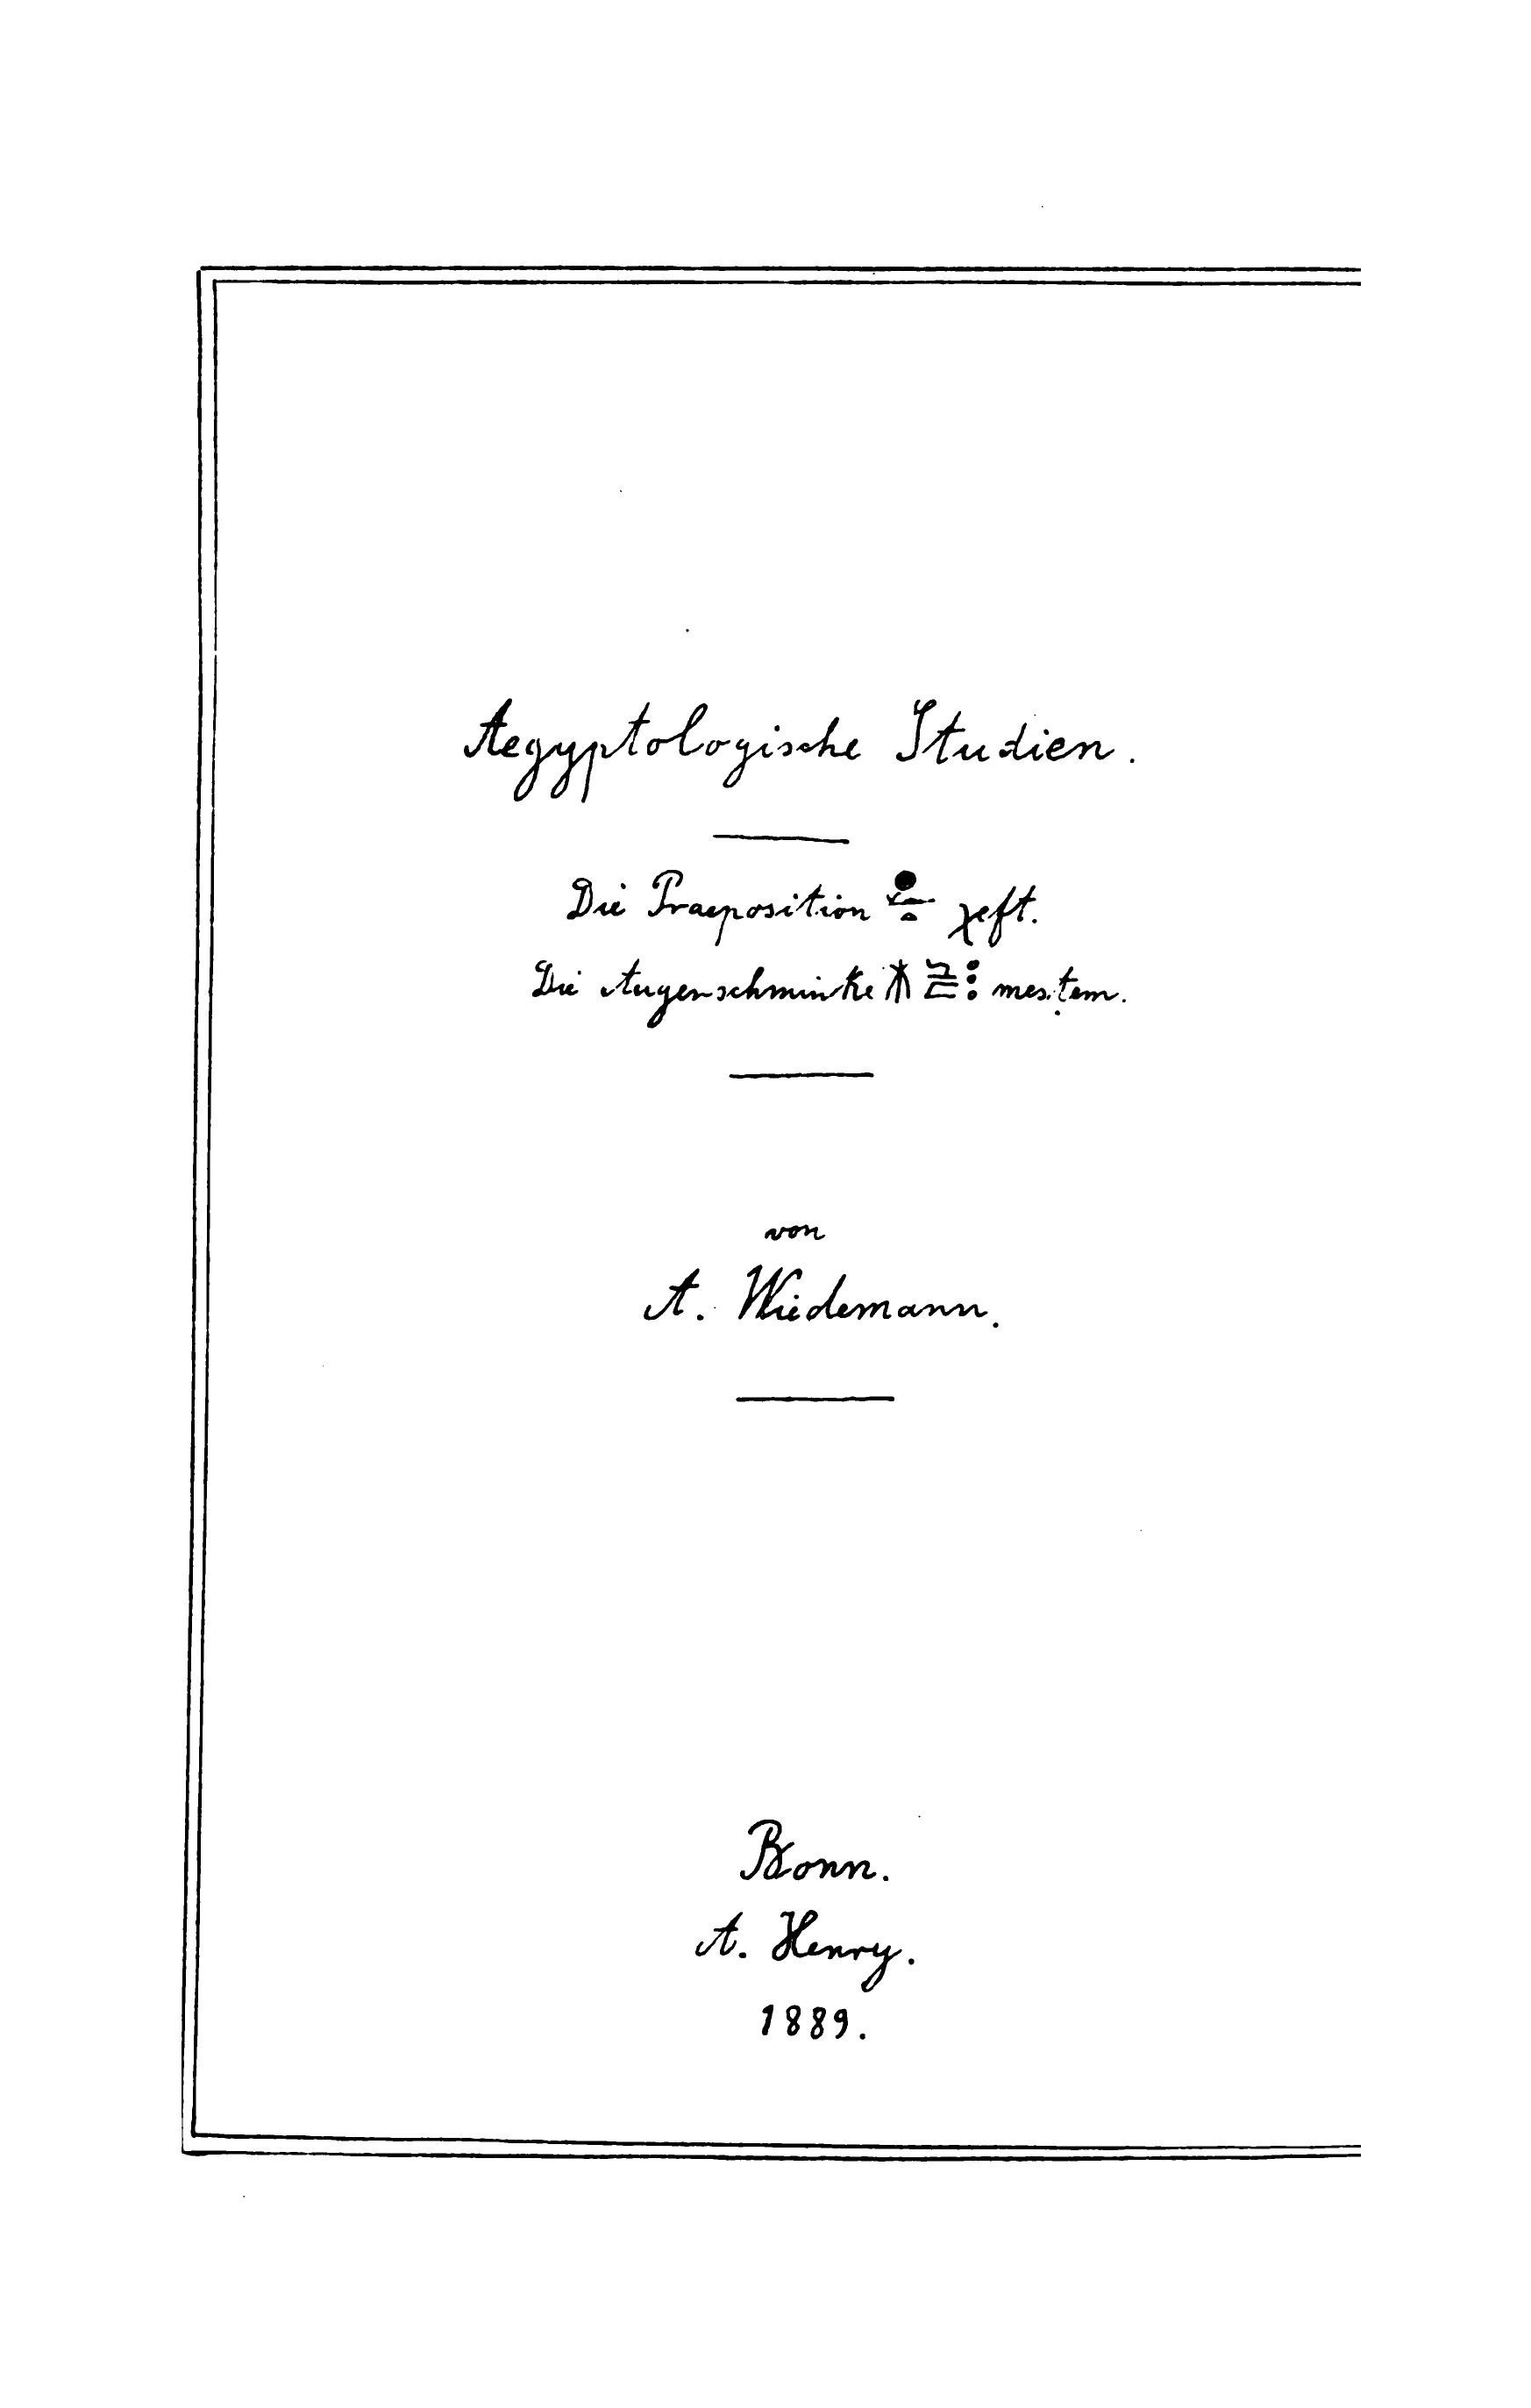 Aegyptologische Studien.
Die Praeposition 𓐍𓆑𓏏 χeft.
Die Augenschminke mesṭem.
von
A. Wiedemann.
Bonn.
A. Henry.
1889.